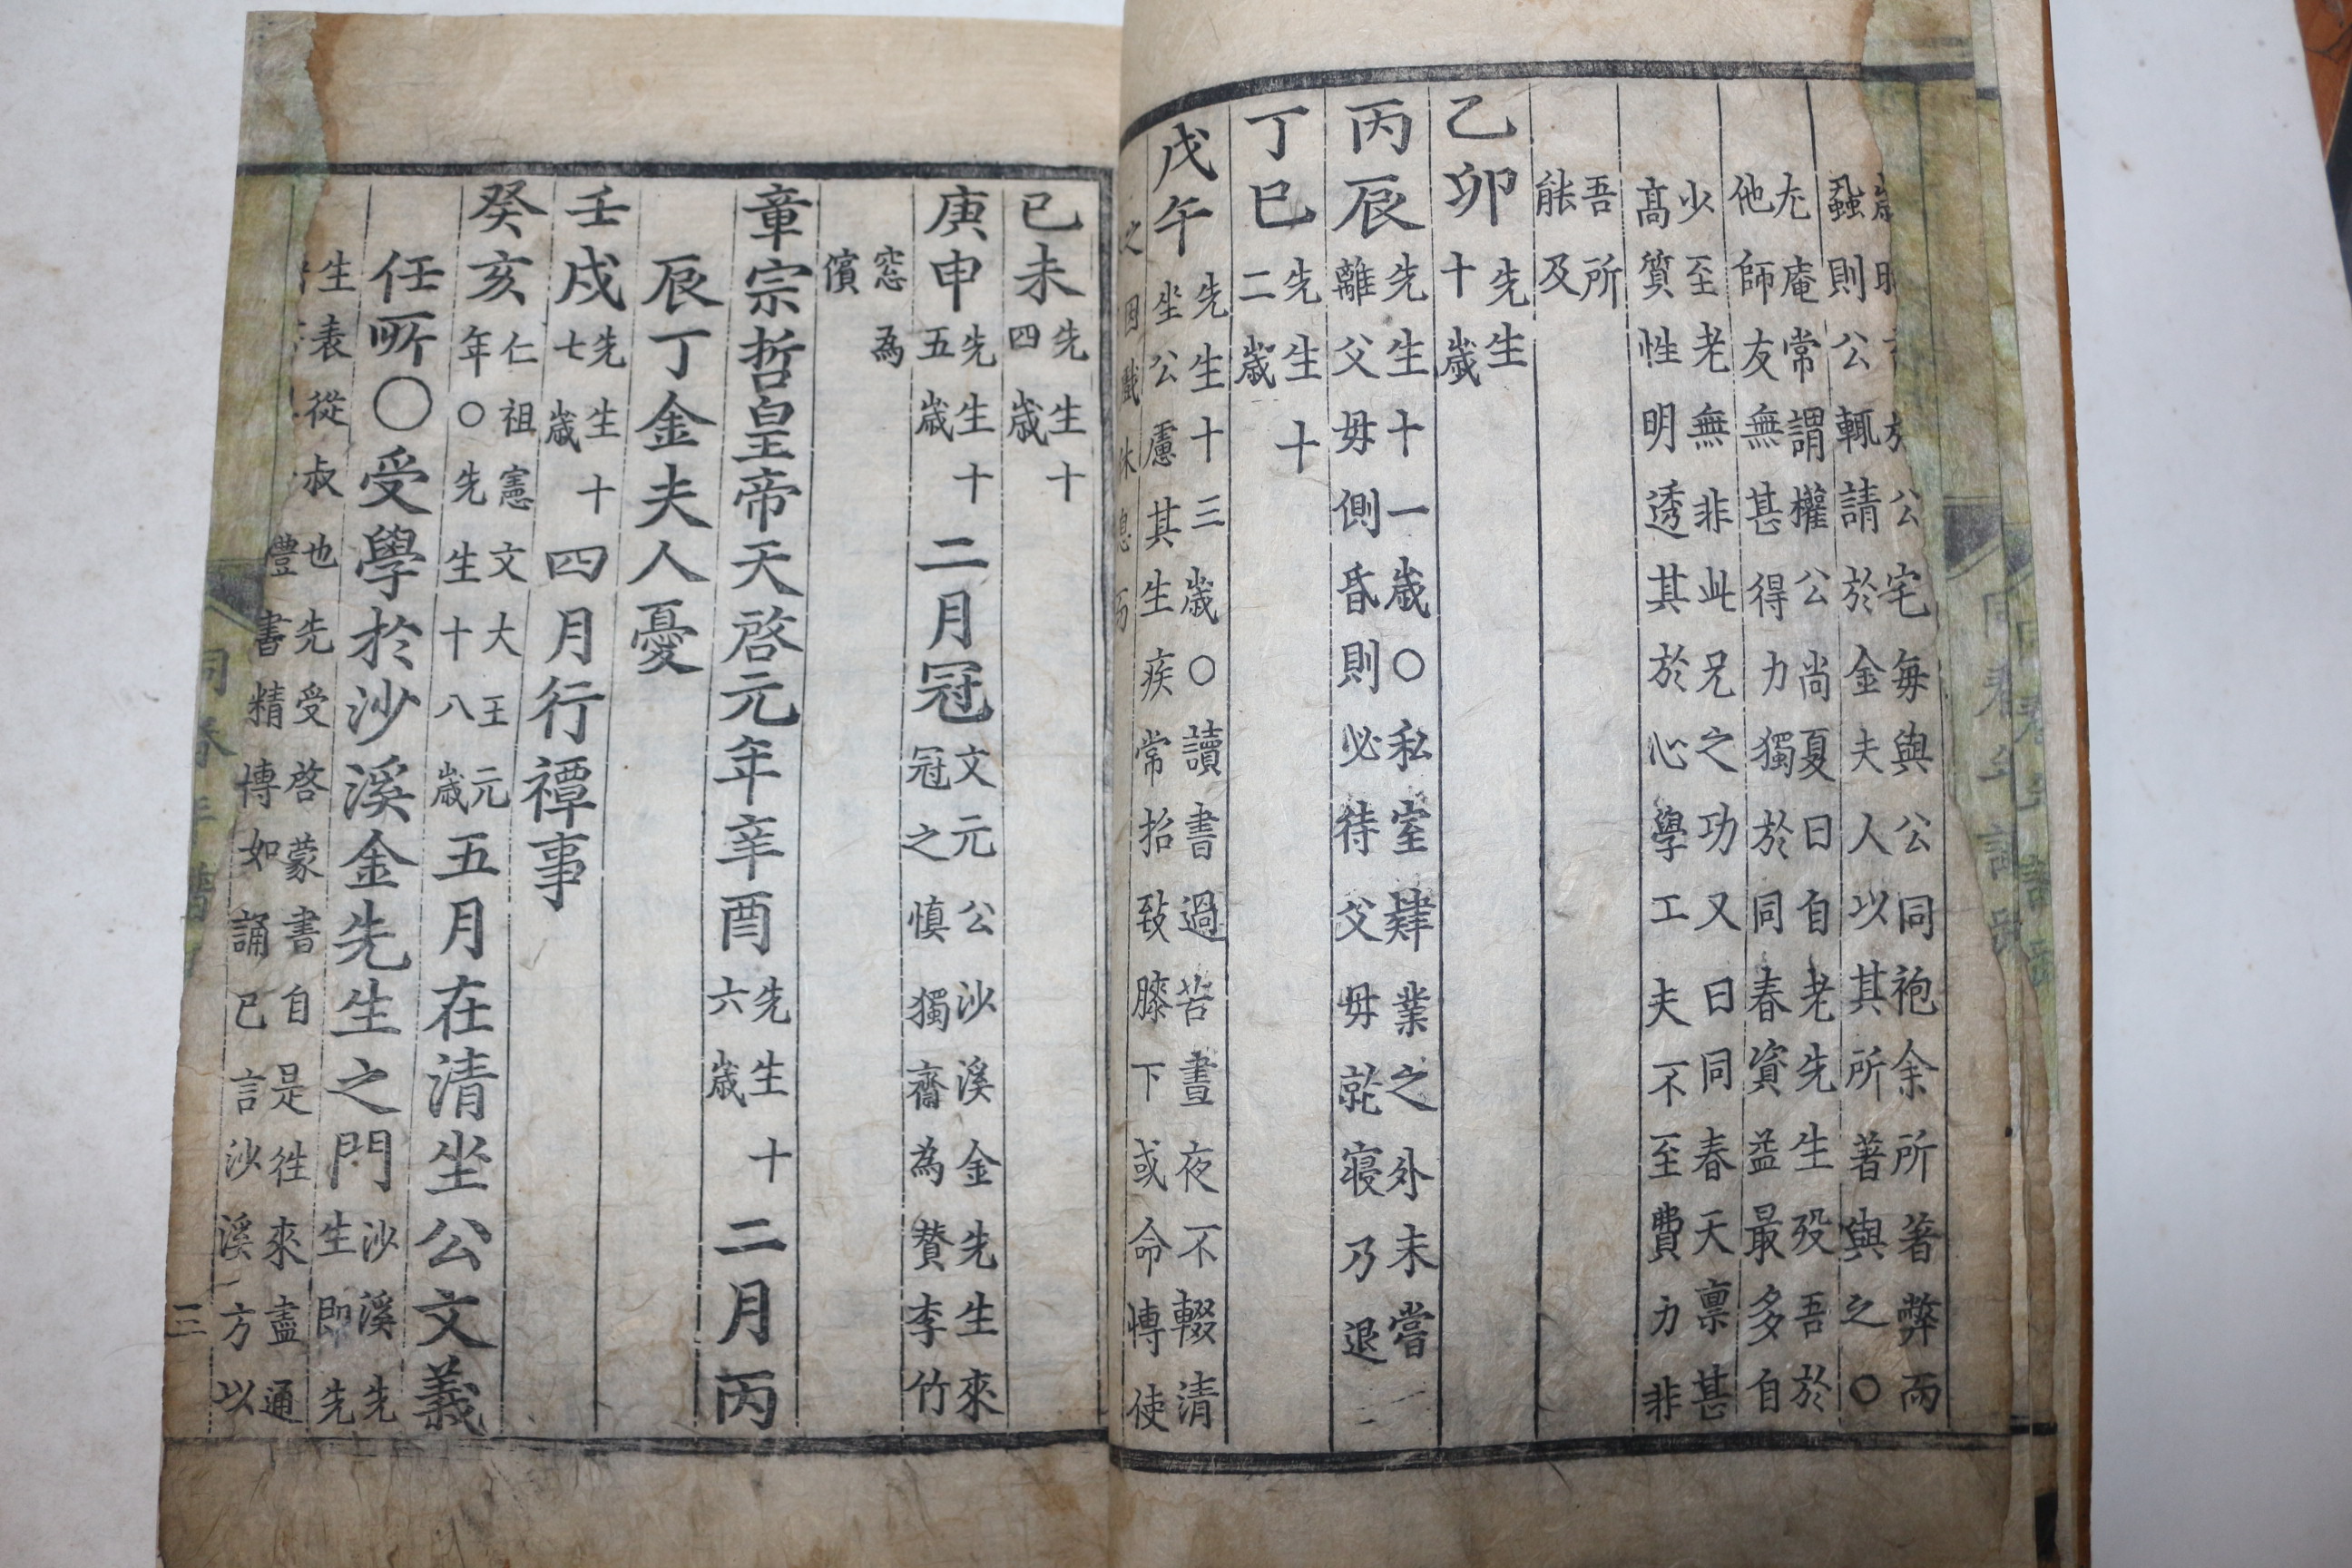 公宅每與公同袍余所著弊而
蝨則公輒請於金夫人以其所著與之○
尤庵常謂權公尚夏曰自老先生歿吾於
他師友無甚得力獨於同春資益最多自
少至老無非此兄之功又曰同春天禀甚
高質性明透其於心學工夫不至費力非
吾所
能及
乙卯先生
十歲
丙辰先生十一歲○私室肄業之外未嘗
離父母側昏則必待父母就寢乃退
丁巳先生十
二歲
戊午先生十三歲○讀書過苦晝夜不輟清
坐公慮其生疾常招致膝下或命博使
之因戱休息焉
己未先生十
四歲
庚申先生十
五歲
二月冠文元公沙溪金先生來
冠之愼獨齋為贊李竹
窓為
儐
章宗哲皇帝天啓元年辛酉先生十
六歲
二月丙
辰丁金夫人憂
壬戌先生十
七歲
四月行禫事
癸亥仁祖憲文大王元
年○先生十八歲
五月在清坐公文義
任所○受學於沙溪金先生之門沙溪先
生即先
生表從叔也先受啓蒙書自是徃來盡通
禮書精博如誦己言沙溪方以
三